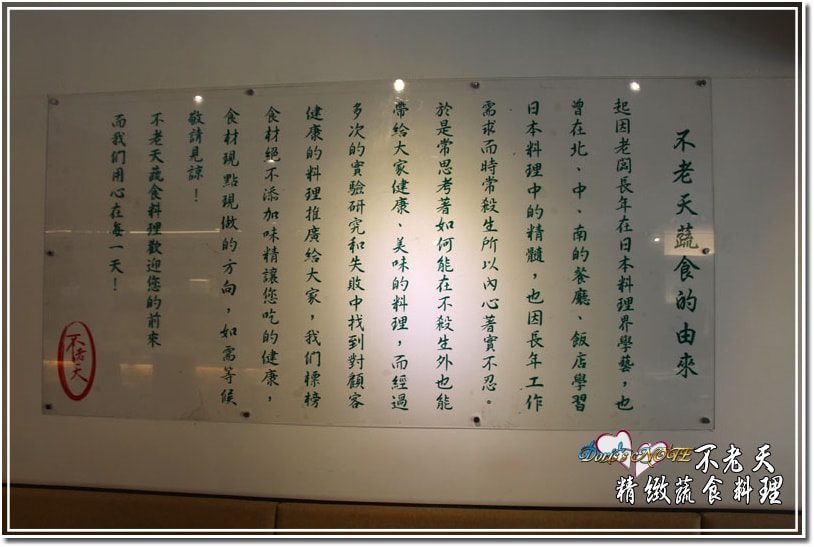 不老天蔬食的由來
起因老闆長年在日本料理界學藝，也
曾在北、中、南的餐廳、飯店學習
日本料理中的精髓，也因長年工作
需求而時常殺生所以內心著實不忍。
於是常思考著如何能在不殺生外也能
帶給大家健康、美味的料理，而經過
多次的實驗研究和失敗中找到對顧客
健康的料理推廣給大家，我們標榜
食材絕不添加味精讓您吃的健康，
食材現點現做的方向，如需等候
敬請見諒！
不老天蔬食料理歡迎您的前來
而我们用心在每一天！
不老天
Doris's NOTE
不老天
精緻蔬食料理